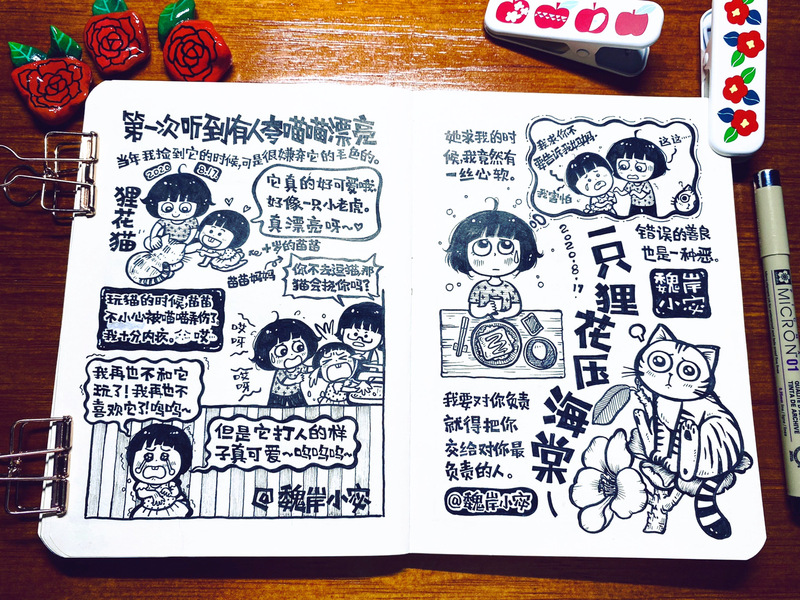 第一次听到有人夸喵喵漂亮
当年我捡到它的时候,可是很嫌弃它的毛色的。
2020
8.17
狸花猫
它真的好可爱哦,
好像一只小老虎。
真漂亮呀~
十岁的苗苗
苗苗妈妈
你不去逗猫那
猫会挠你吗?
玩猫的时候,苗苗
不小心被喵喵弄伤了
我十分内疚。
哎呀~
哎呀~
我再也不和它
玩了!我再也不
喜欢它了!呜呜~
但是它打人的样
子真可爱~呜呜呜~
@魏岸小宓
她求我的时
候,我竟然有
一丝心软。
我求你不
要告诉我妈妈.
我害怕
这这…
错误的善良
也是一种恶。
魏岸
小宓
2020.8.17
一只狸花压海棠
我要对你负责
就得把你
交给对你最
负责的人。
@魏岸小宓
MICRON 01
TINTA DE ARCHIVE